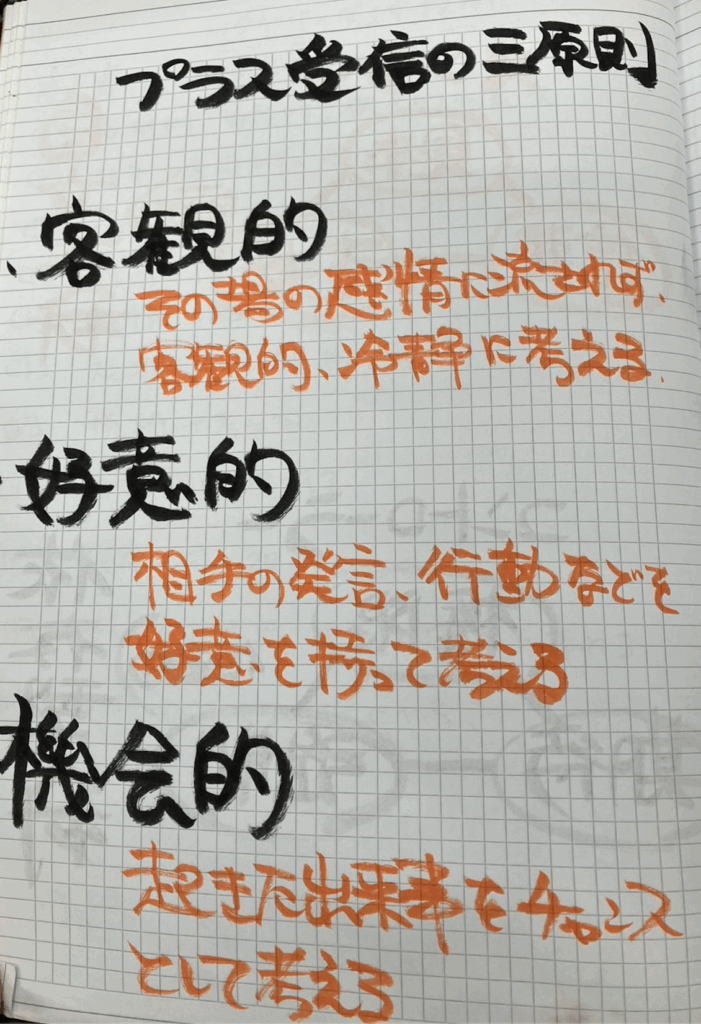 プラス受信の三原則
、客観的
その場の感情に流されず、
客観的、冷静に考える。
・好意的
相手の発言、行動などを
好意を持って考える
機会的
起きた出来事をチャンス
として考える